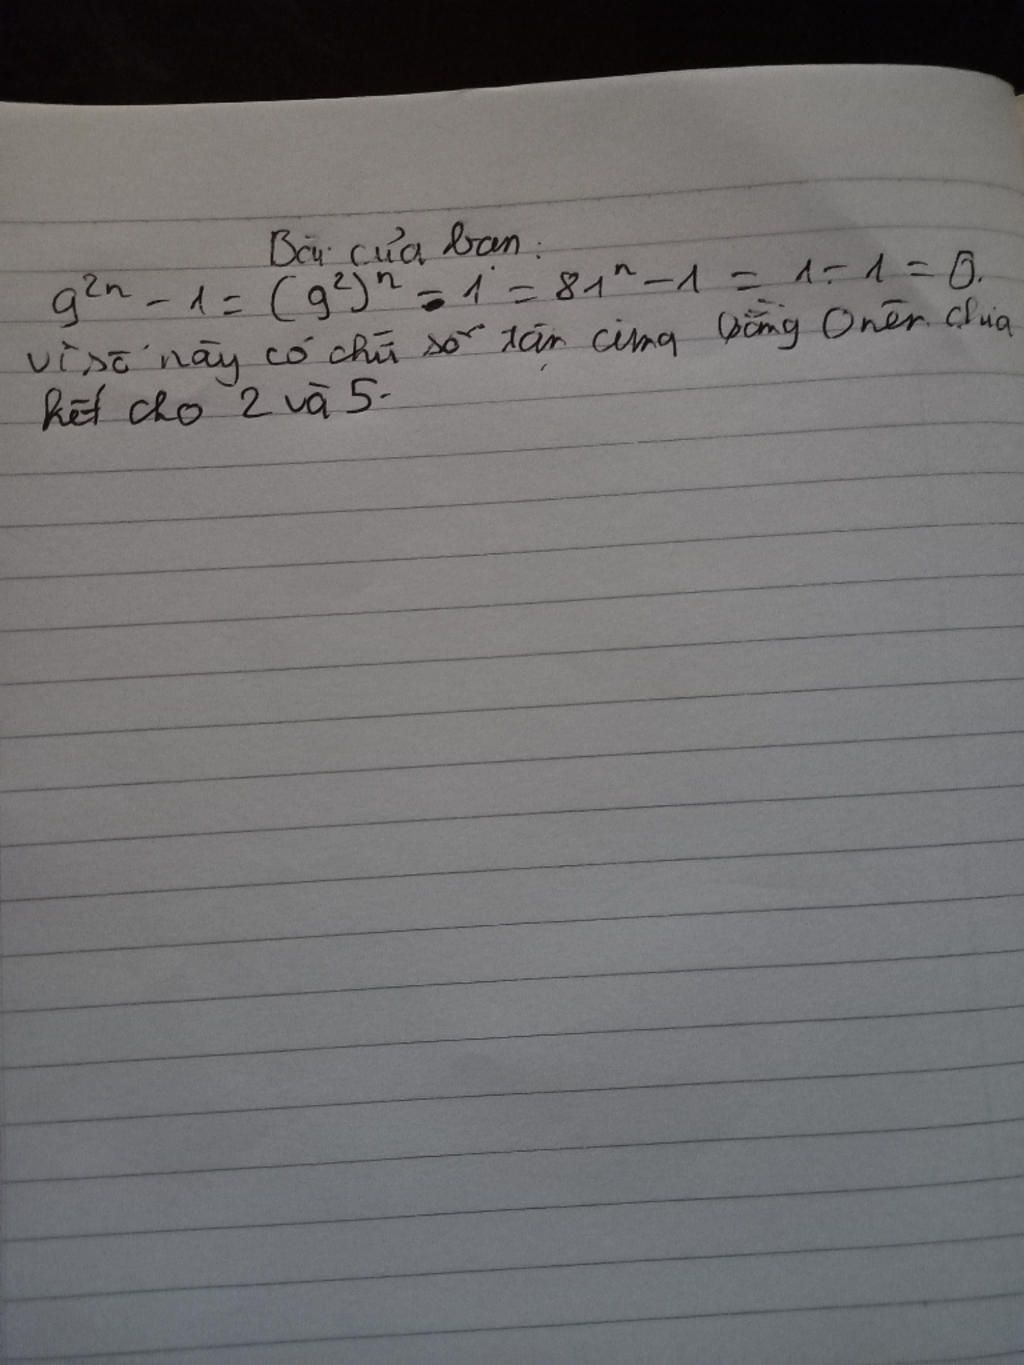 Bài của bạn:
9²ⁿ - 1 = (9²)ⁿ - 1 = 81ⁿ - 1 = 1 - 1 = 0.
Vì số này có chữ số tận cùng bằng 0 nên chia
hết cho 2 và 5.